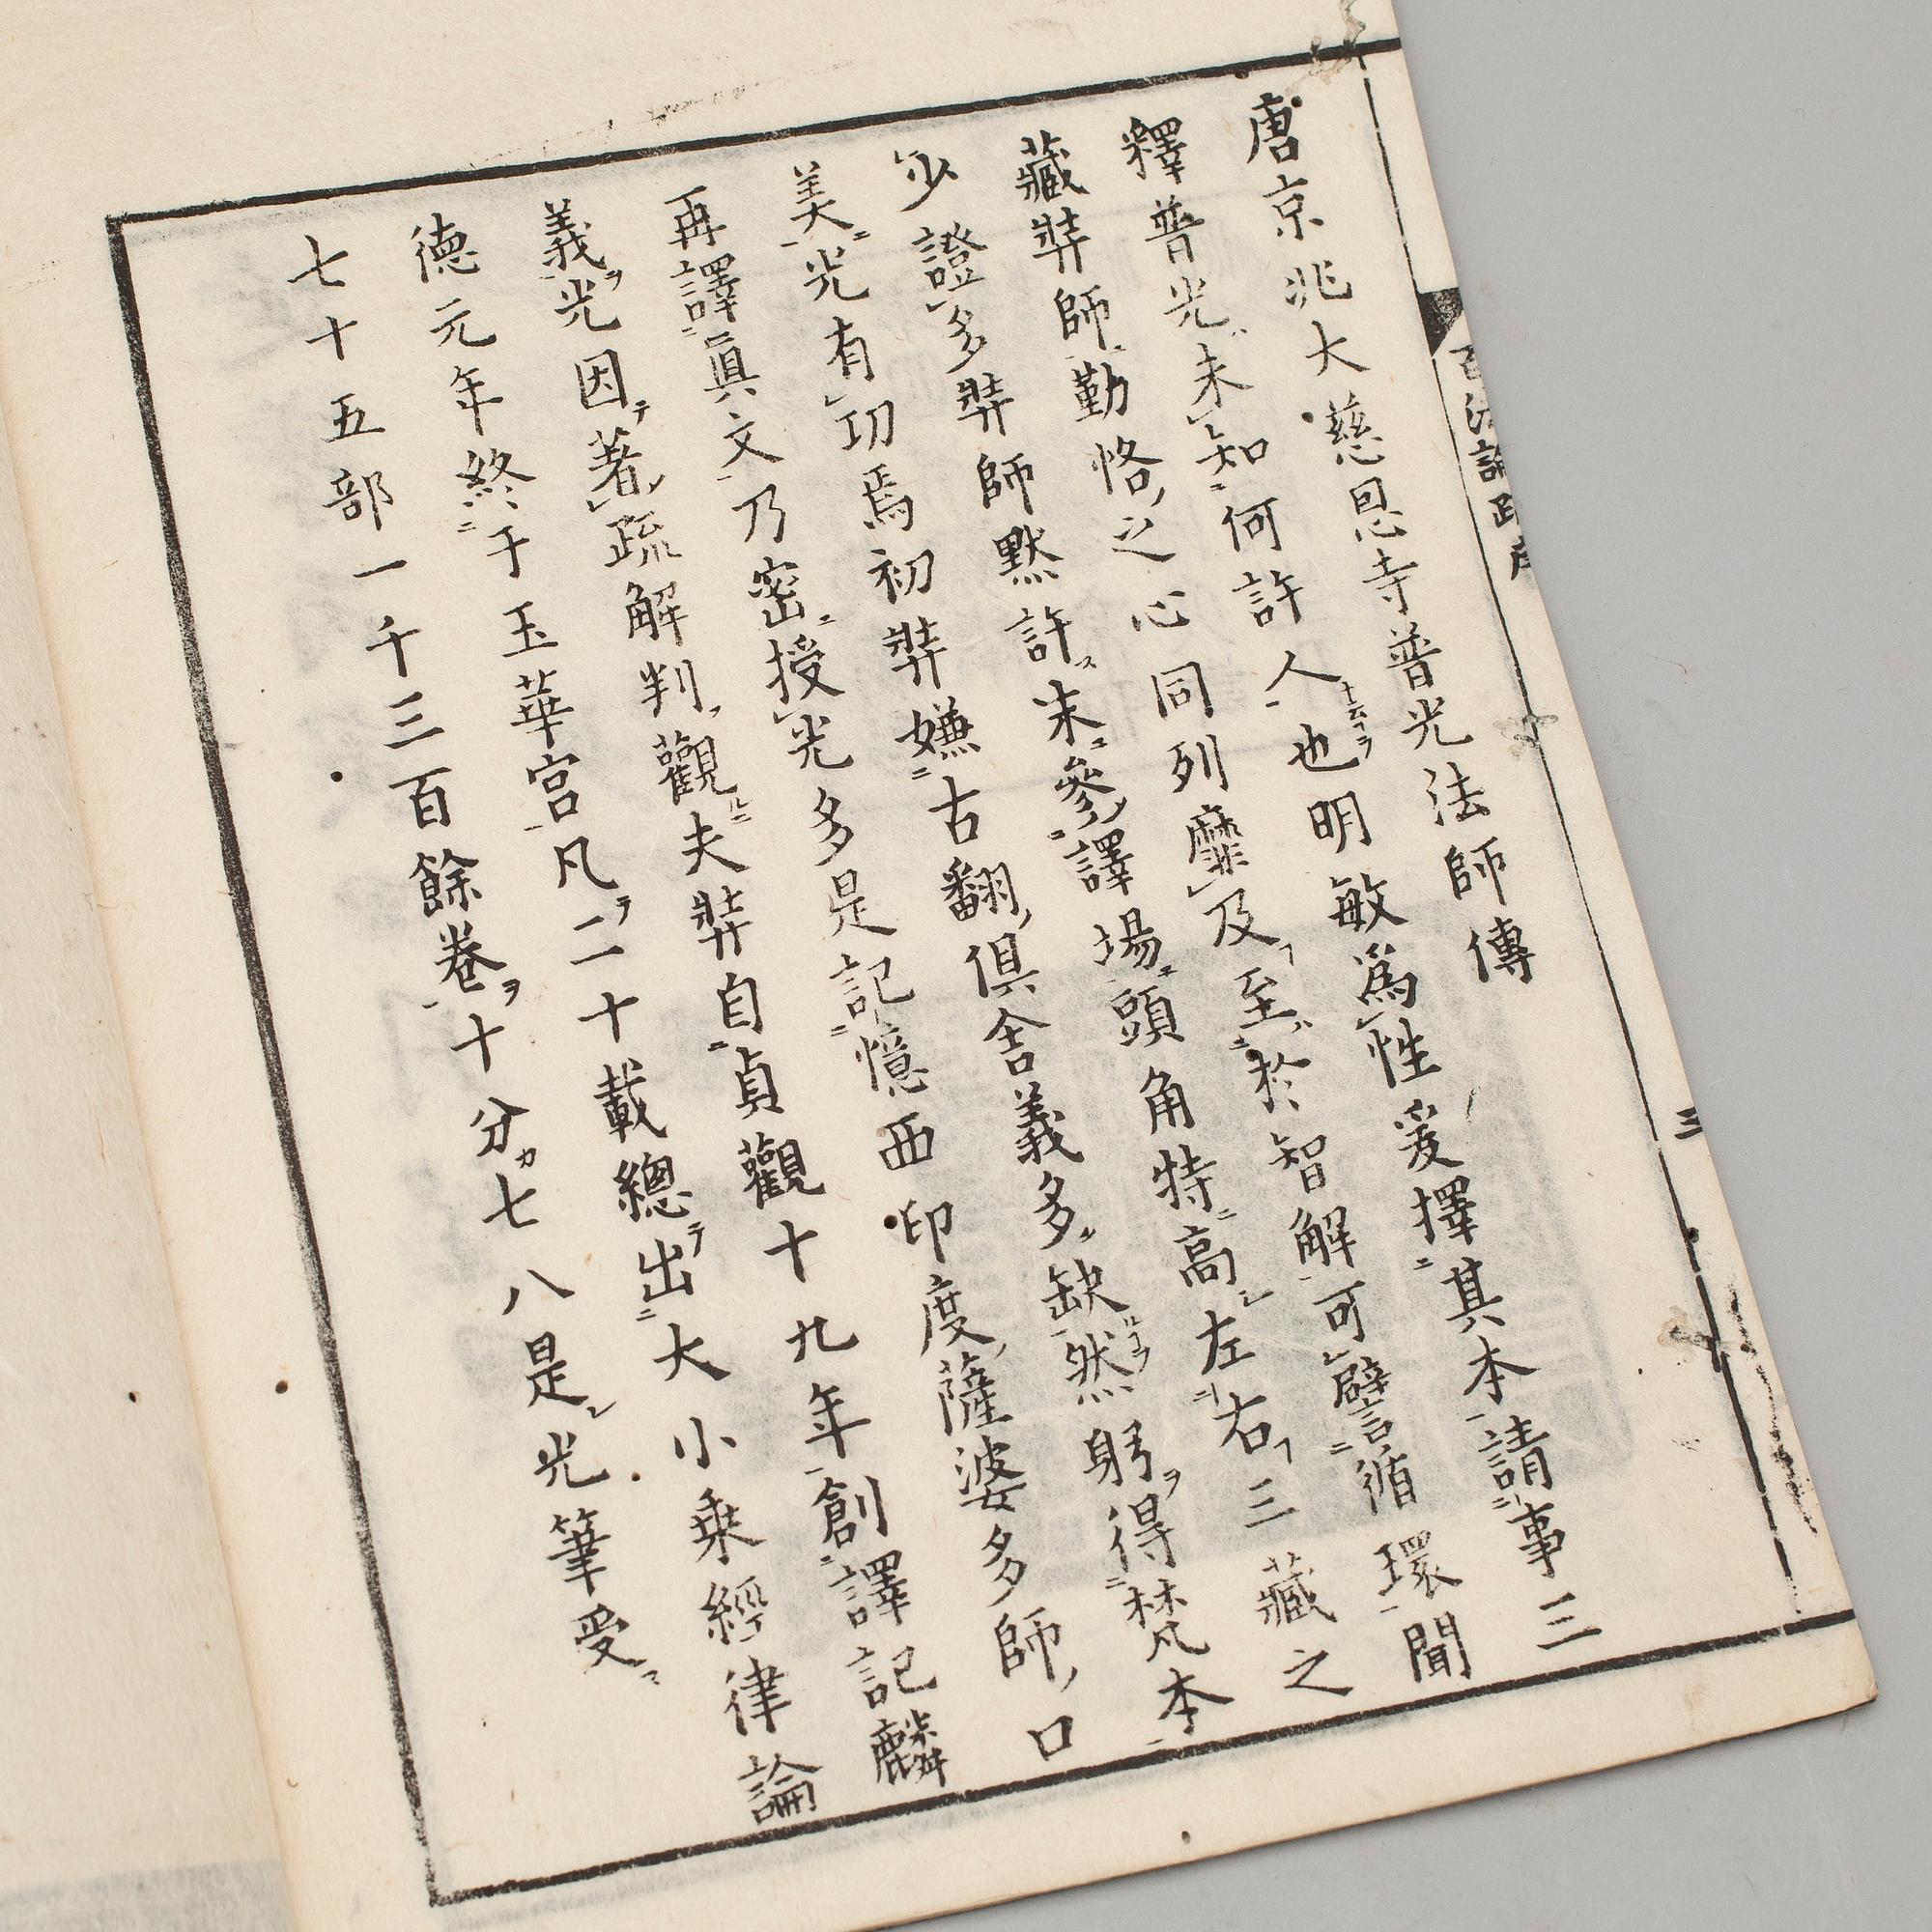 百法論疏序
三
唐京兆大慈恩寺普光法師傳
釋普光未知何許人也明敏爲性爰擇其本請事三
藏弉師勤恪之心同列靡及至於智解可譬循環聞
少證多弉師默許末參譯場頭角特高左右三藏之
美光有功焉初弉嫌古翻俱舍義多缺然躬得梵本
再譯眞文乃密授光多是記憶西印度薩婆多師口
義光因著疏解判觀夫弉自貞觀十九年創譯記麟
德元年終于玉華宮凡二十載總出大小乗經律論
七十五部一千三百餘卷十分七八是光筆受